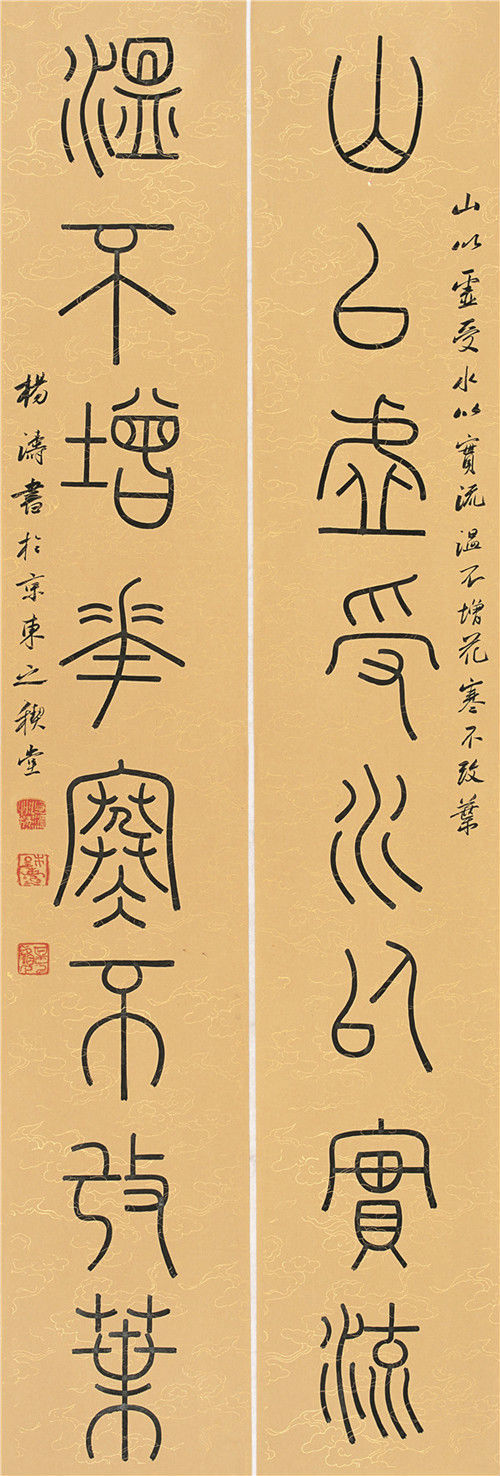 山以虛受水以實流
山以虛受水以實流溫不增花寒不改葉
溫不增華寒不改葉
楊濤書於京東之稧堂